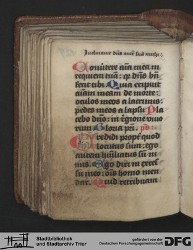 Conuertere aīa mea in
requiem tuā: qr dn̄s bn̄
fecit tibi. Quia eripuit
aīam meam de morte:
oculos meos a lacrimis
pedes meos a lapsu Pla
cebo dn̄o: in regione viuo
rum
Credidi propt̄ quod
locutus sum: ego
autem humiliatus sū ni
mis. Ego dixi in exces
su meo: ōis homo mēdax
Quid retribuam
Stadtbibliothek
und Stadtarchiv Trier
gefördert von der
Deutschen Forschungsgemeinschaft
DFG